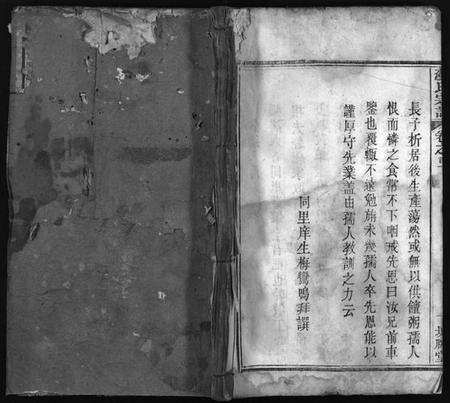 長子析居後生產蕩然或無以供饘粥孺人
恨而憐之食常不下咽戒先恩曰汝兄前車
鑒也覆轍不遠勉旃未幾孺人卒先恩能以
謹厚守先業蓋由孺人教訓之力云
同里庠生梅鸞鳴拜譔